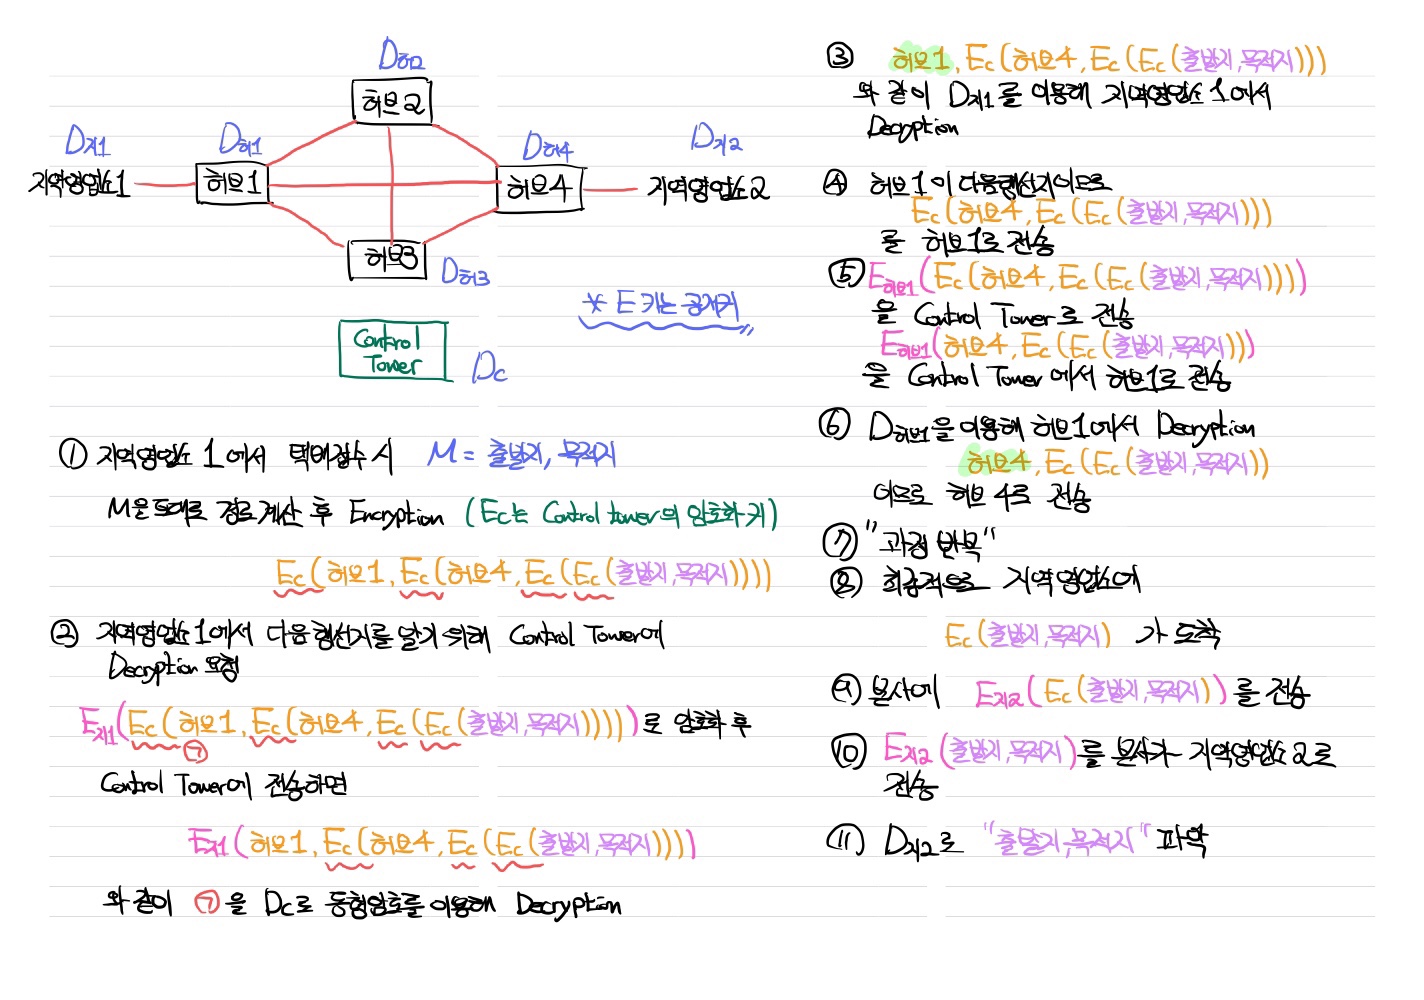 D허2
허브2
D지1
D허1
D허4
D지2
지역영업소1
허브1
허브4
지역영업소2
허브3
D허3
* E 키는 공개키
Control
Tower
Dc
① 지역영업소 1에서 택배접수 시 M = 출발지, 목적지
M을 토대로 경로 계산 후 Encryption (Ec는 Control tower의 암호화 키)
Ec(허브1, Ec(허브4, Ec(Ec(출발지, 목적지))))
② 지역영업소1에서 다음 행선지를 알기 위해 Control Tower에
Decryption 요청
E지1(Ec(허브1, Ec(허브4, Ec(Ec(출발지, 목적지)))))로 암호화 후
㉠
Control Tower에 전송하면
E지1(허브1, Ec(허브4, Ec(Ec(출발지, 목적지))))
와 같이 ㉠을 Dc로 동형암호를 이용해 Decryption
③ 허브1, Ec(허브4, Ec(Ec(출발지, 목적지)))
와 같이 D지1를 이용해 지역영업소1에서
Decryption
④ 허브1이 다음행선지이므로
Ec(허브4, Ec(Ec(출발지, 목적지)))
를 허브1로 전송
⑤ E허브1(Ec(허브4, Ec(Ec(출발지, 목적지))))
을 Control Tower로 전송
E허브1(허브4, Ec(Ec(출발지, 목적지)))
을 Control Tower에서 허브1로 전송
⑥ D허브1을 이용해 허브1에서 Decryption
허브4, Ec(Ec(출발지, 목적지))
이므로 허브 4로 전송
⑦ "과정 반복"
⑧ 최종적으로 지역영업소에
Ec(출발지, 목적지)가 도착
⑨ 본사에 E지2(Ec(출발지, 목적지))를 전송
⑩ E지2(출발지, 목적지)를 본사가 지역영업소2로
전송
⑪ D지2로 "출발지, 목적지" 파악